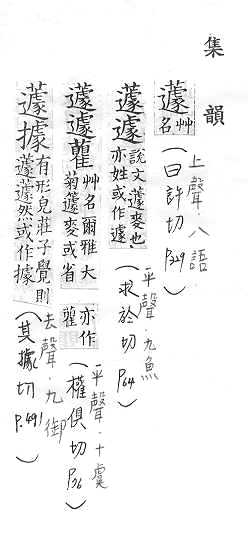 集韻
蘧 艸名 (臼許切 P.329) 上聲.八語
蘧蘧 說文蘧麥也亦姓或作遽 (求於切 P.64) 平聲.九魚
蘧蘧蘿 艸名爾雅大菊蘧麥或省亦作蘿 (權俱切 P.76) 平聲.十虞
蘧據 有形皃莊子覺則蘧蘧然或作據 (其據切 P.491) 去聲.九御